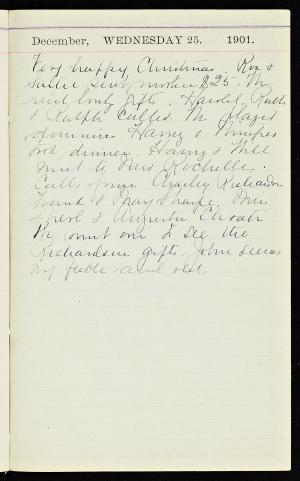 December, WEDNESDAY 25. 1901.
Very happy Christmas. Roe &
Sallie sent mother $25. We
rec'd lovely gifts. Harold, Ruth
& Ralph called. We played
dominoes. Harry &
took dinner. Harry & Will
went to New Rochelle.
Calls from Richardson
Frank & May Sharpe,
& Augusta Choate
We went over to see the
Richardson gifts. John seems
very feeble and old.